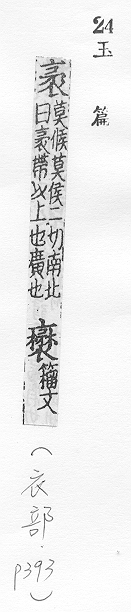 24
玉篇
袤莫候莫侯二切南北
曰袤帶以上也廣也
𧛱籀文
（衣部．p393）